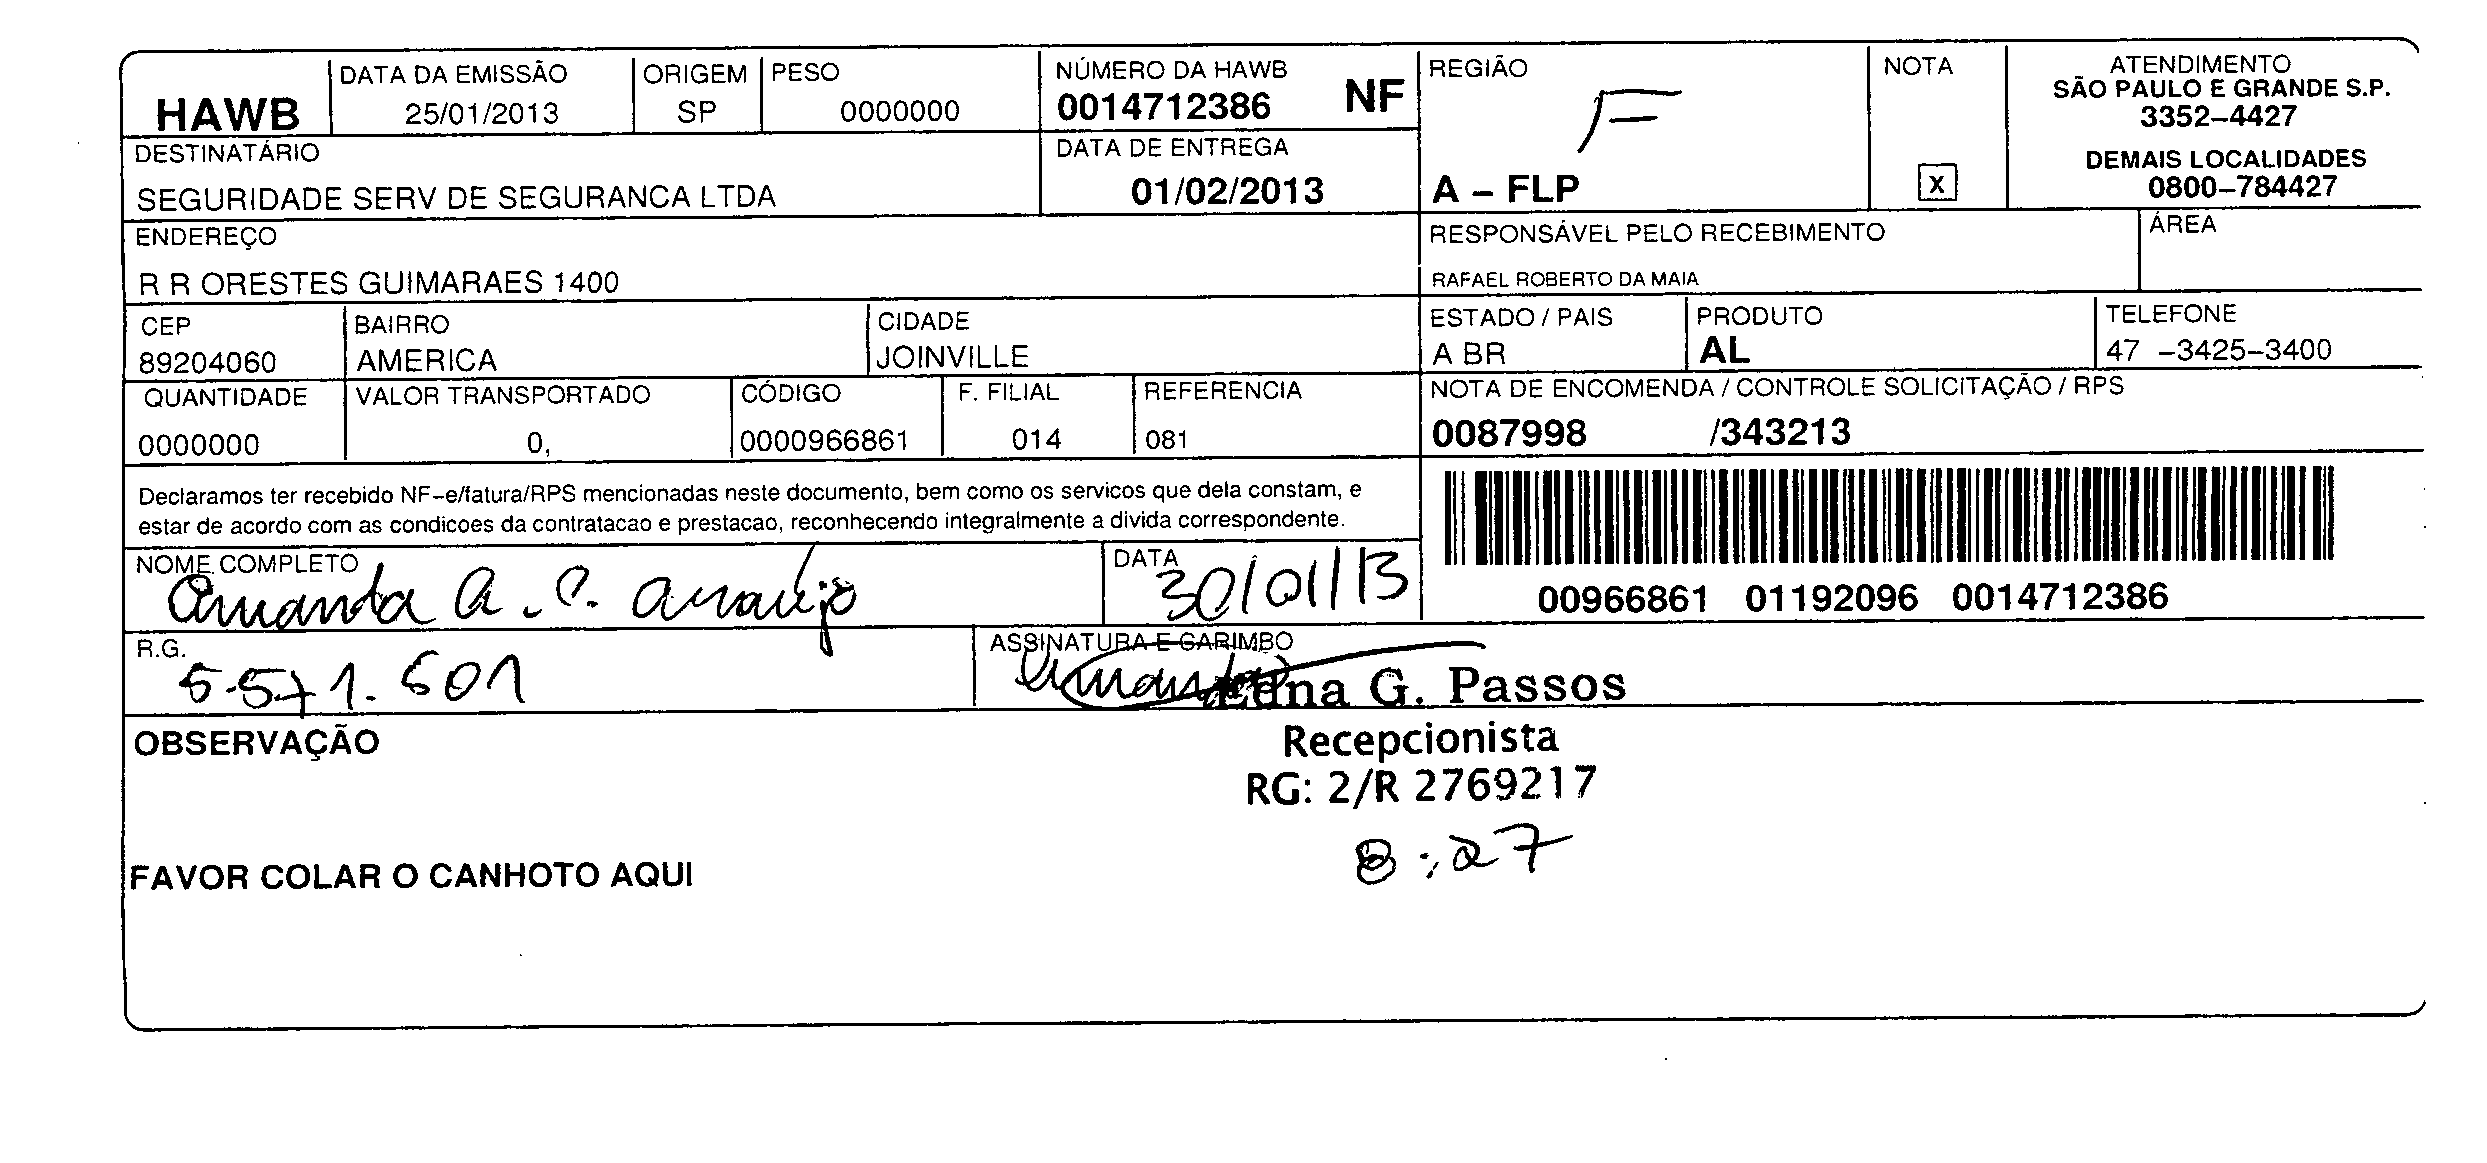 HAWB
DATA DA EMISSÃO
25/01/2013
ORIGEM
SP
PESO
0000000
NÚMERO DA HAWB
0014712386 NF
REGIÃO
F
A – FLP
NOTA
X
ATENDIMENTO
SÃO PAULO E GRANDE S.P.
3352–4427
DEMAIS LOCALIDADES
0800–784427
DESTINATÁRIO
SEGURIDADE SERV DE SEGURANCA LTDA
DATA DE ENTREGA
01/02/2013
ENDEREÇO
R R ORESTES GUIMARAES 1400
RESPONSÁVEL PELO RECEBIMENTO
RAFAEL ROBERTO DA MAIA
ÁREA
CEP
89204060
BAIRRO
AMERICA
CIDADE
JOINVILLE
ESTADO / PAIS
A BR
PRODUTO
AL
TELEFONE
47 –3425–3400
QUANTIDADE
0000000
VALOR TRANSPORTADO
0,
CÓDIGO
0000966861
F. FILIAL
014
REFERENCIA
081
NOTA DE ENCOMENDA / CONTROLE SOLICITAÇÃO / RPS
0087998 /343213
Declaramos ter recebido NF–e/fatura/RPS mencionadas neste documento, bem como os servicos que dela constam, e
estar de acordo com as condicoes da contratacao e prestacao, reconhecendo integralmente a divida correspondente.
00966861 01192096 0014712386
NOME COMPLETO
Amanda A. C. Araujo
DATA
30/01/13
R.G.
5.571.601
ASSINATURA E CARIMBO
Amanda
G. Passos
Recepcionista
RG: 2/R 2769217
8:27
OBSERVAÇÃO
FAVOR COLAR O CANHOTO AQUI